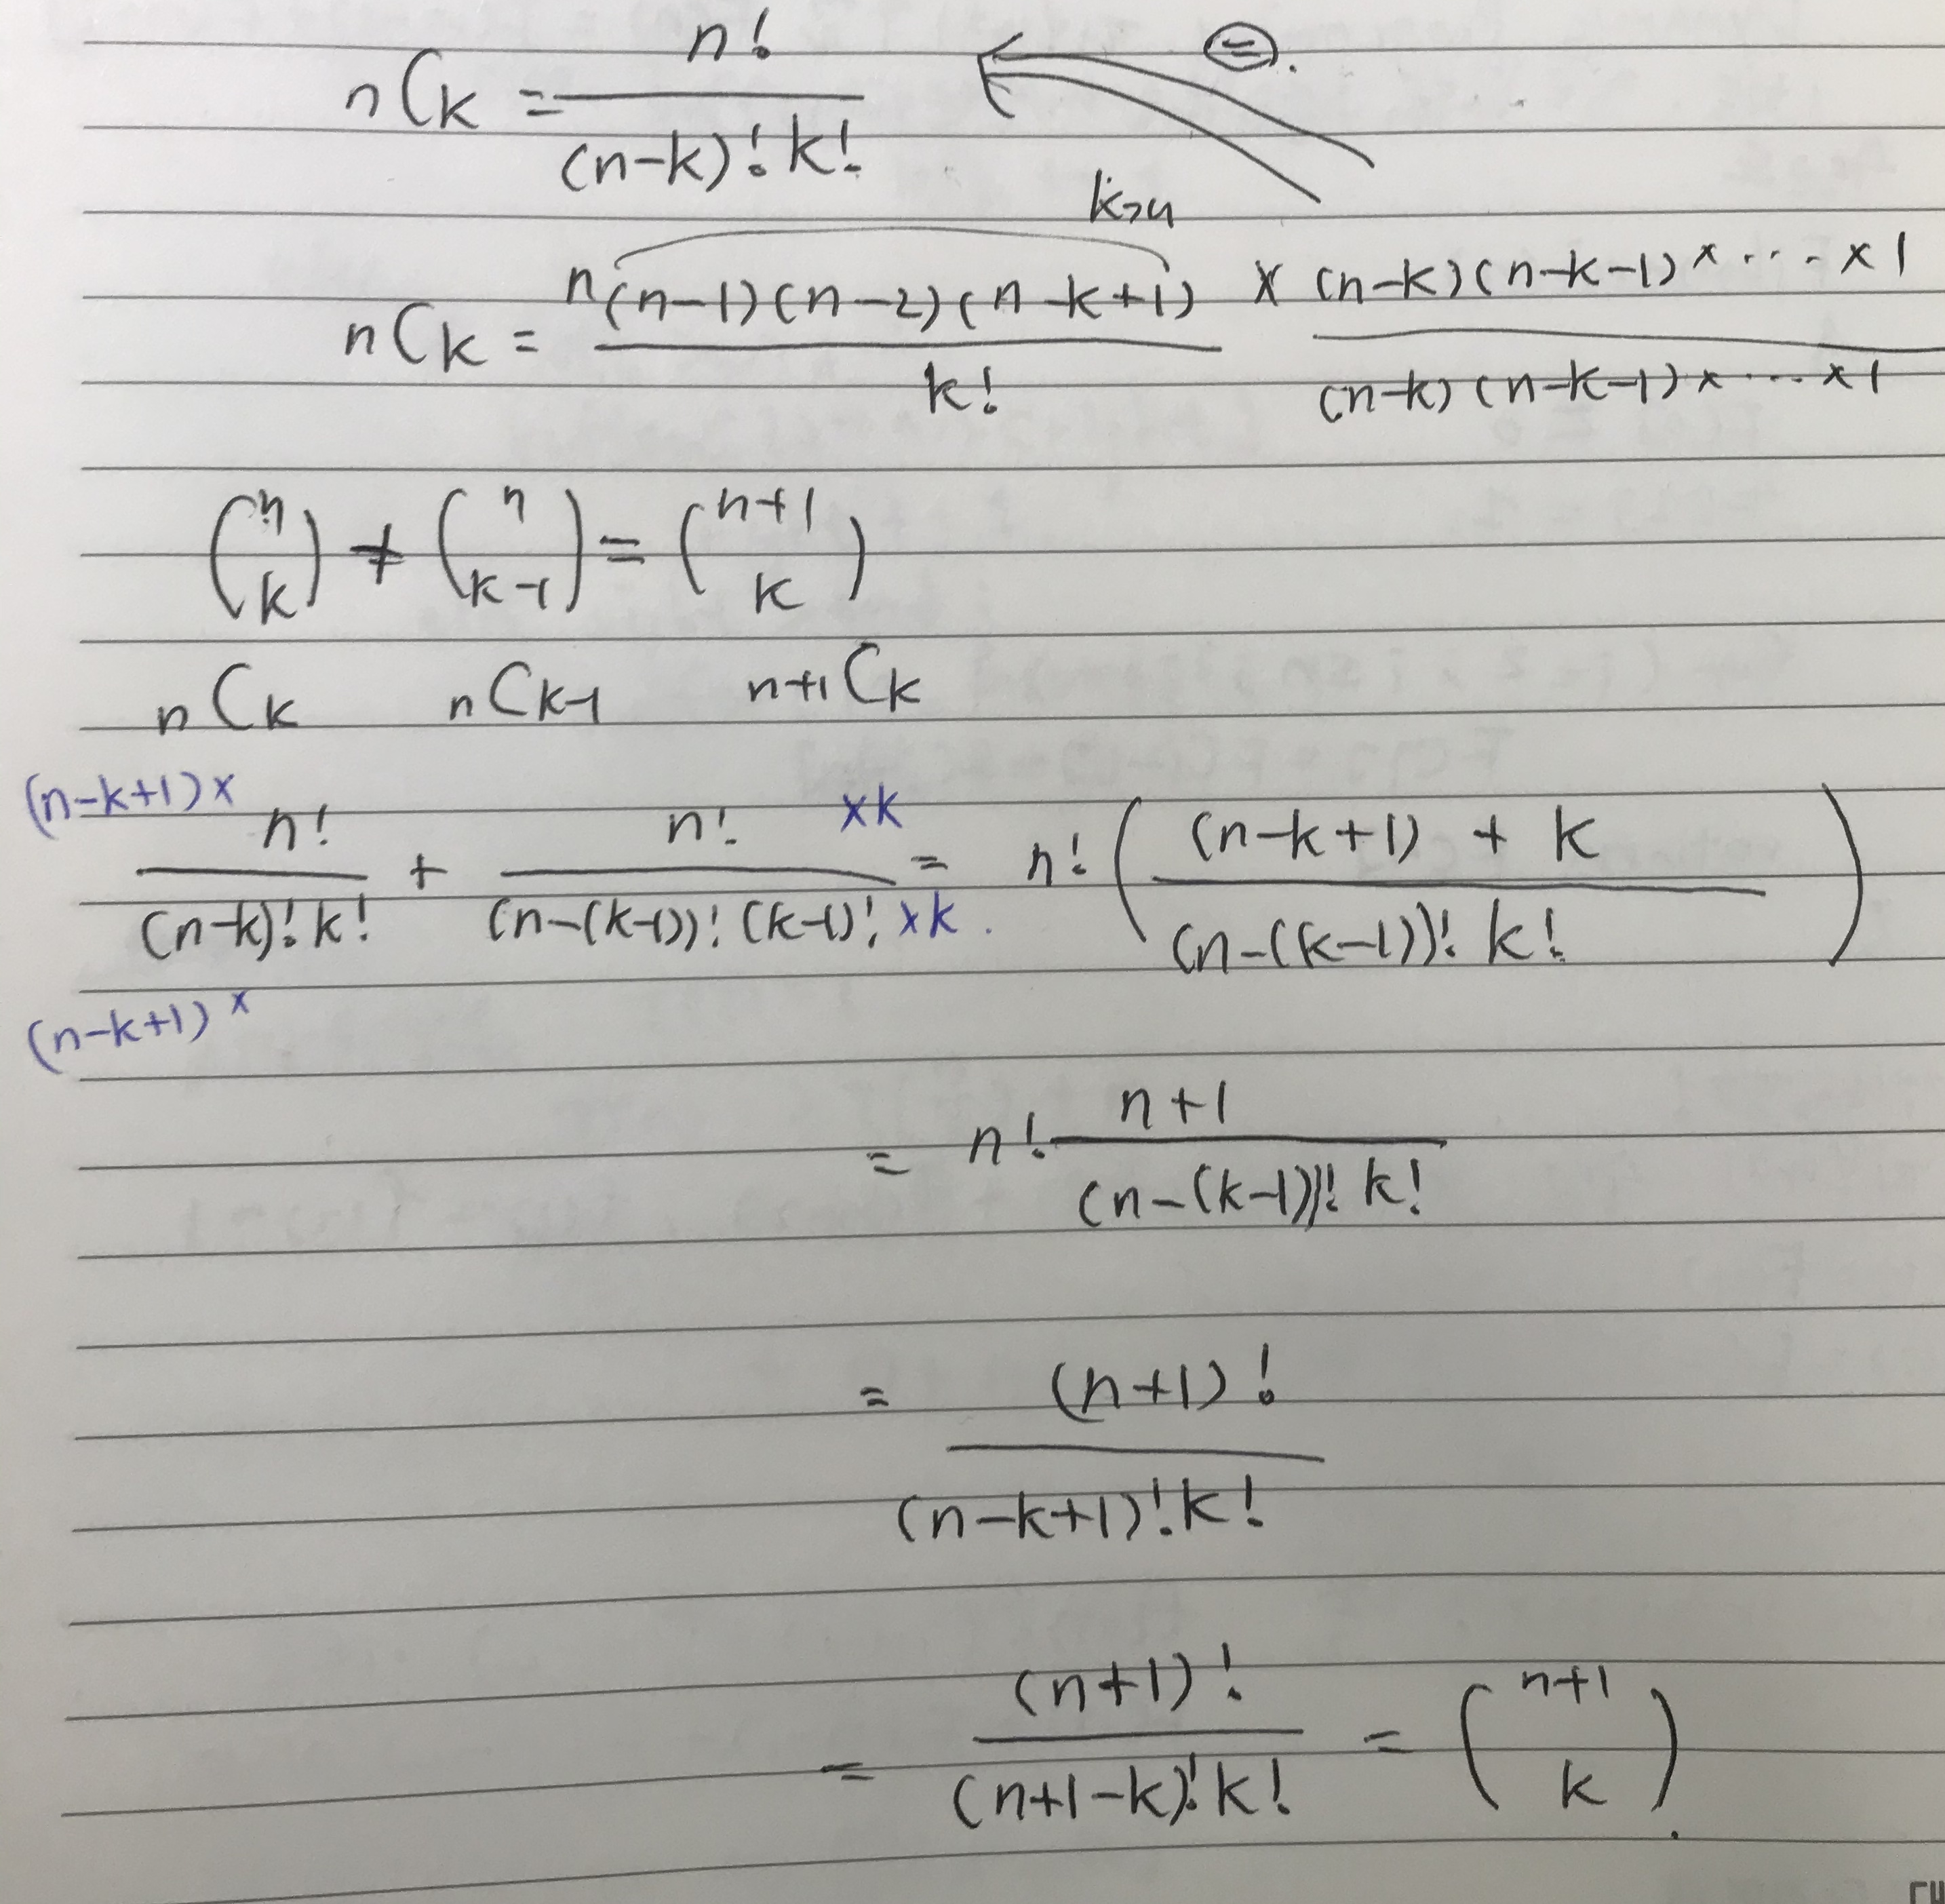 nCk = n! / (n-k)! k!
=.
k개
nCk = n(n-1)(n-2)(n-k+1) / k! × (n-k)(n-k-1)×···×1 / (n-k)(n-k-1)×···×1
(n k) + (n k-1) = (n+1 k)
nCk nCk-1 n+1Ck
(n-k+1)× n! / (n-k+1)× (n-k)! k! + n! ×k / (n-(k-1))! (k-1)! ×k. = n! ( (n-k+1) + k / (n-(k-1))! k! )
= n! n+1 / (n-(k-1))! k!
= (n+1)! / (n-k+1)! k!
= (n+1)! / (n+1-k)! k! = (n+1 k).